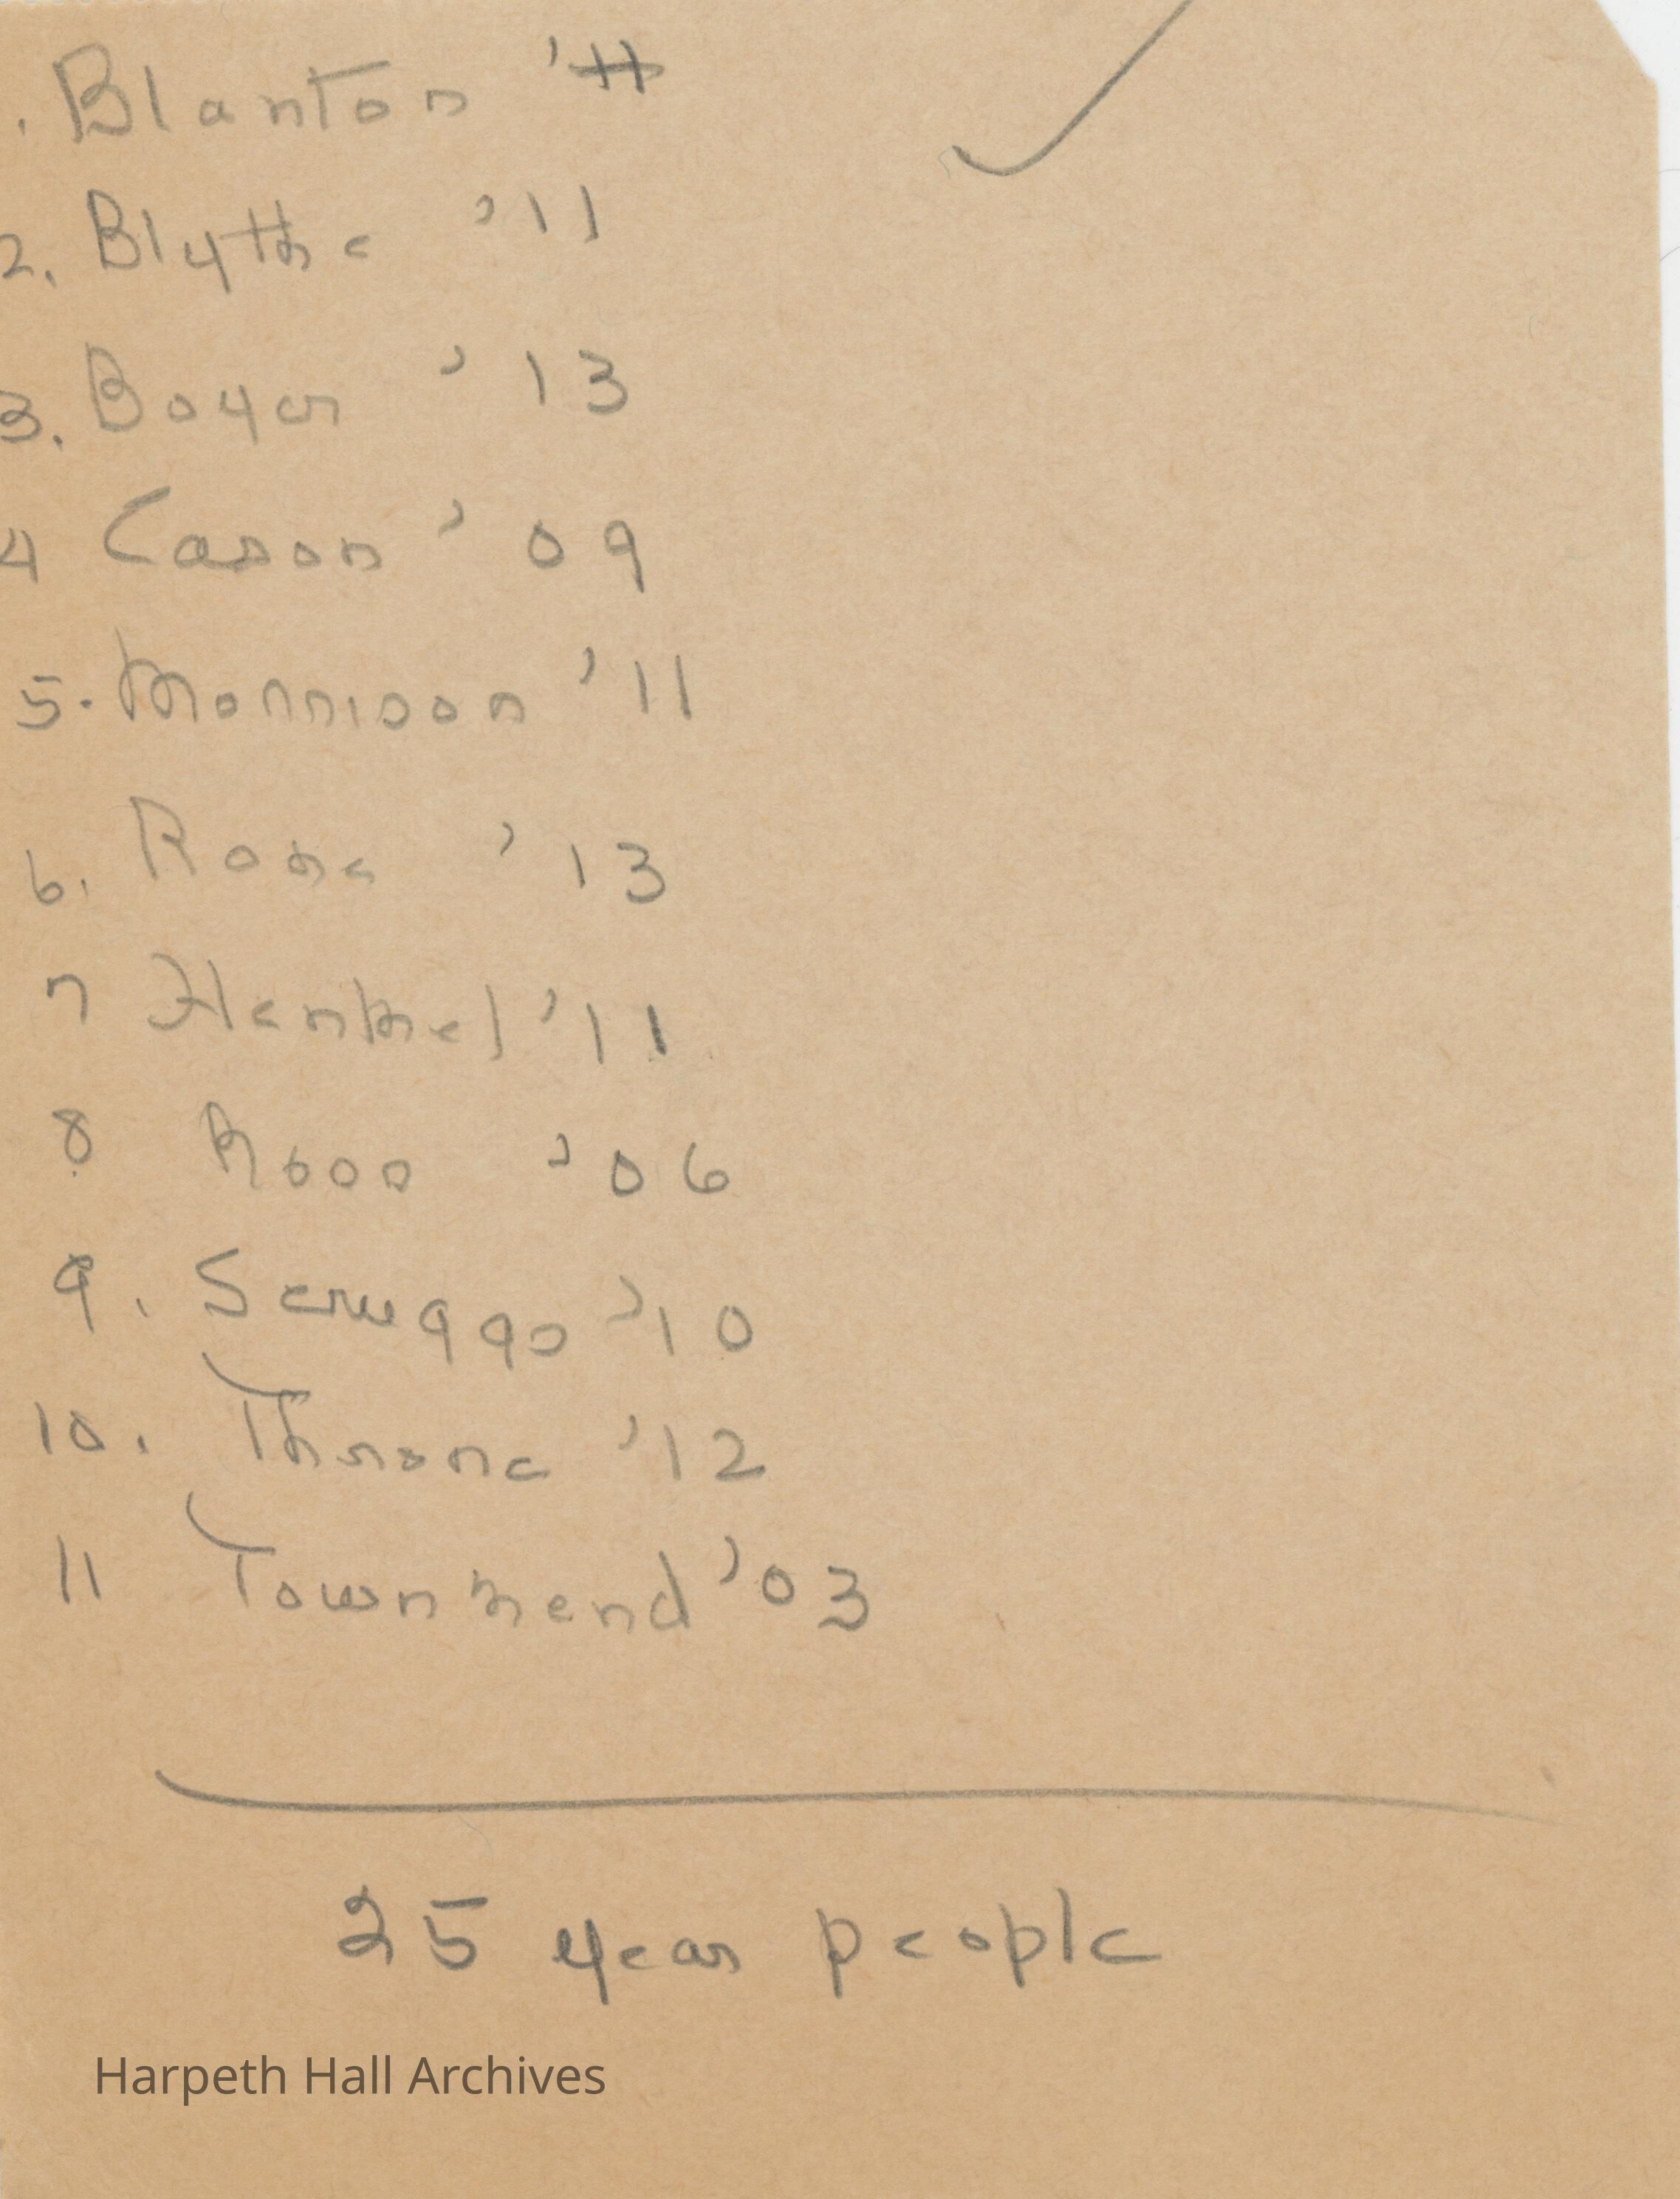 . Blanton '11
2. Blythe '11
3. Boyer '13
4 Cason '09
5. Morrison '11
6. Rone '13
7 Henkel '11
8 Ross '06
9. Scruggs '10
10. Throne '12
11 Townsend '03
25 year people
Harpeth Hall Archives